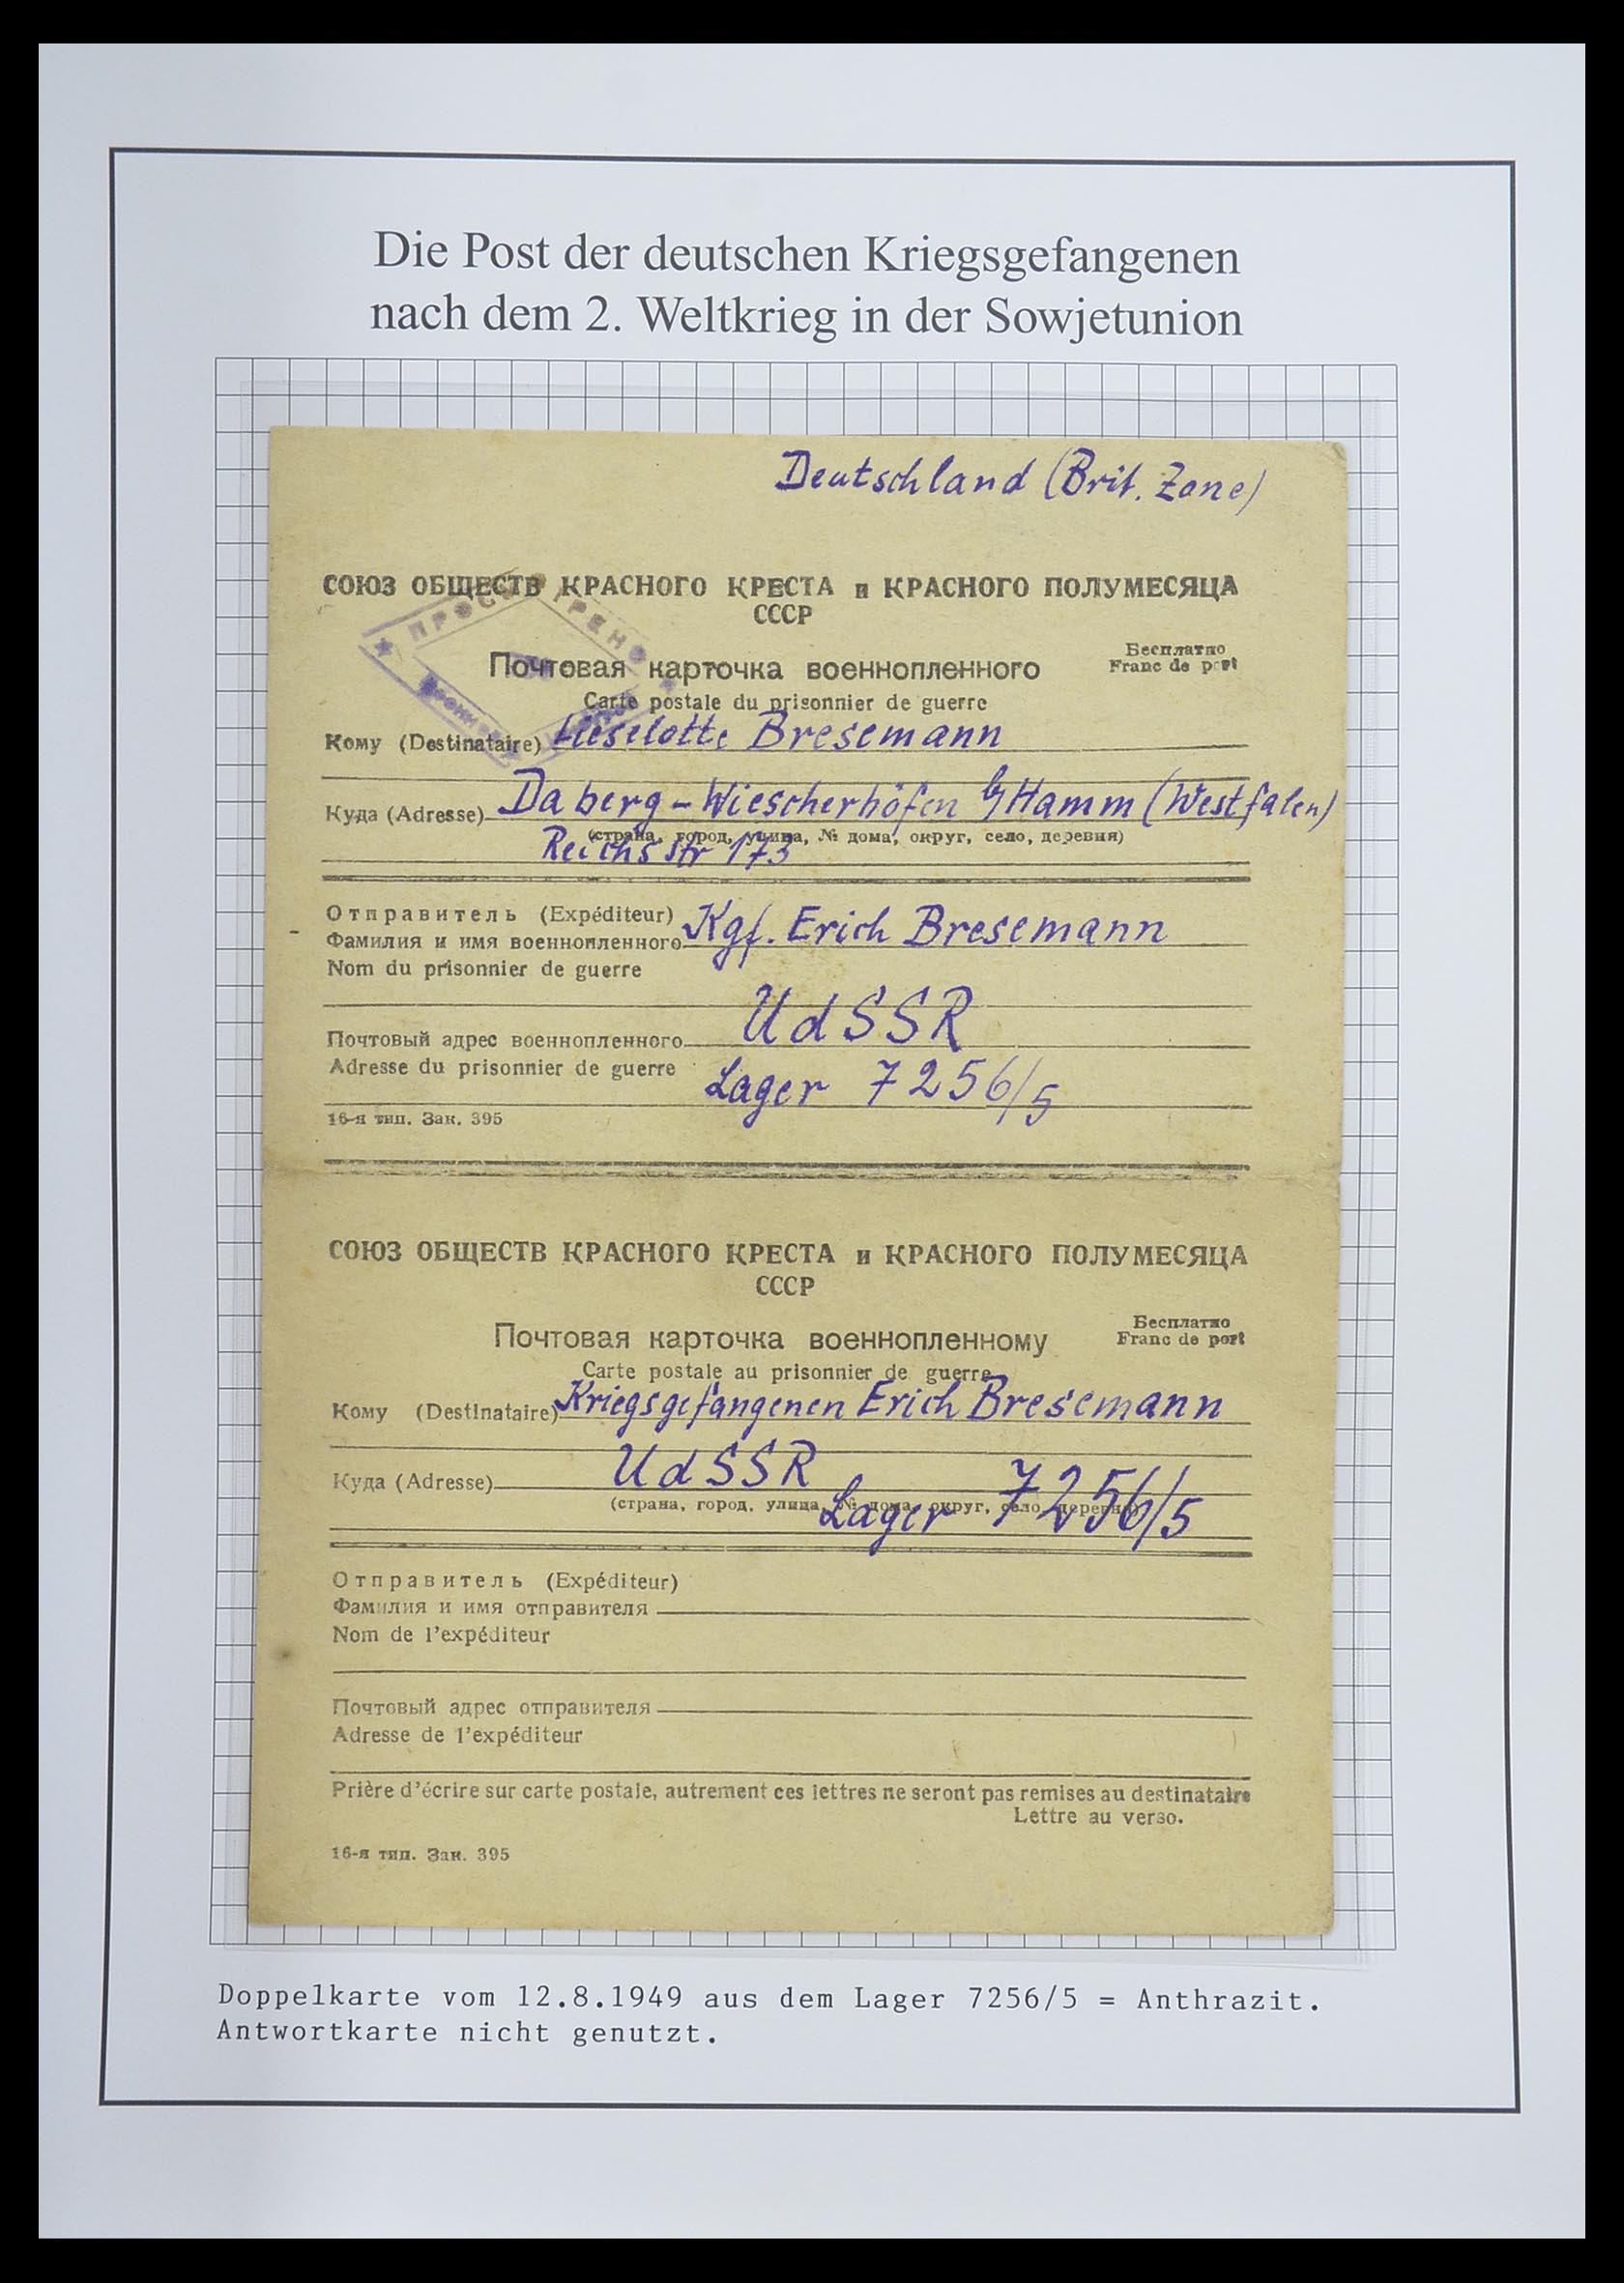 Die Post der deutschen Kriegsgefangenen
nach dem 2. Weltkrieg in der Sowjetunion
Deutschland (Brit. Zone)
СОЮЗ ОБЩЕСТВ КРАСНОГО КРЕСТА и КРАСНОГО ПОЛУМЕСЯЦА
СССР
ПРОСМОТРЕНО
Почтовая карточка военнопленного
Бесплатно
Franc de port
Carte postale du prisonnier de guerre
Кому (Destinataire) Lieselotte Bresemann
Куда (Adresse) Daberg - Wiescherhöfen b/Hamm (Westfalen)
(страна, город, улица, № дома, округ, село, деревня)
Reichsstr 173
Отправитель (Expéditeur)
Фамилия и имя военнопленного Kgf. Erich Bresemann
Nom du prisonnier de guerre
Почтовый адрес военнопленного UdSSR
Adresse du prisonnier de guerre Lager 7256/5
16-я тип. Зак. 395
СОЮЗ ОБЩЕСТВ КРАСНОГО КРЕСТА и КРАСНОГО ПОЛУМЕСЯЦА
СССР
Почтовая карточка военнопленному
Бесплатно
Franc de port
Carte postale au prisonnier de guerre
Кому (Destinataire) Kriegsgefangenen Erich Bresemann
Куда (Adresse) UdSSR
(страна, город, улица, № дома, округ, село, деревня)
Lager 7256/5
Отправитель (Expéditeur)
Фамилия и имя отправителя
Nom de l'expéditeur
Почтовый адрес отправителя
Adresse de l'expéditeur
Prière d'écrire sur carte postale, autrement ces lettres ne seront pas remises au destinataire
Lettre au verso.
16-я тип. Зак. 395
Doppelkarte vom 12.8.1949 aus dem Lager 7256/5 = Anthrazit.
Antwortkarte nicht genutzt.